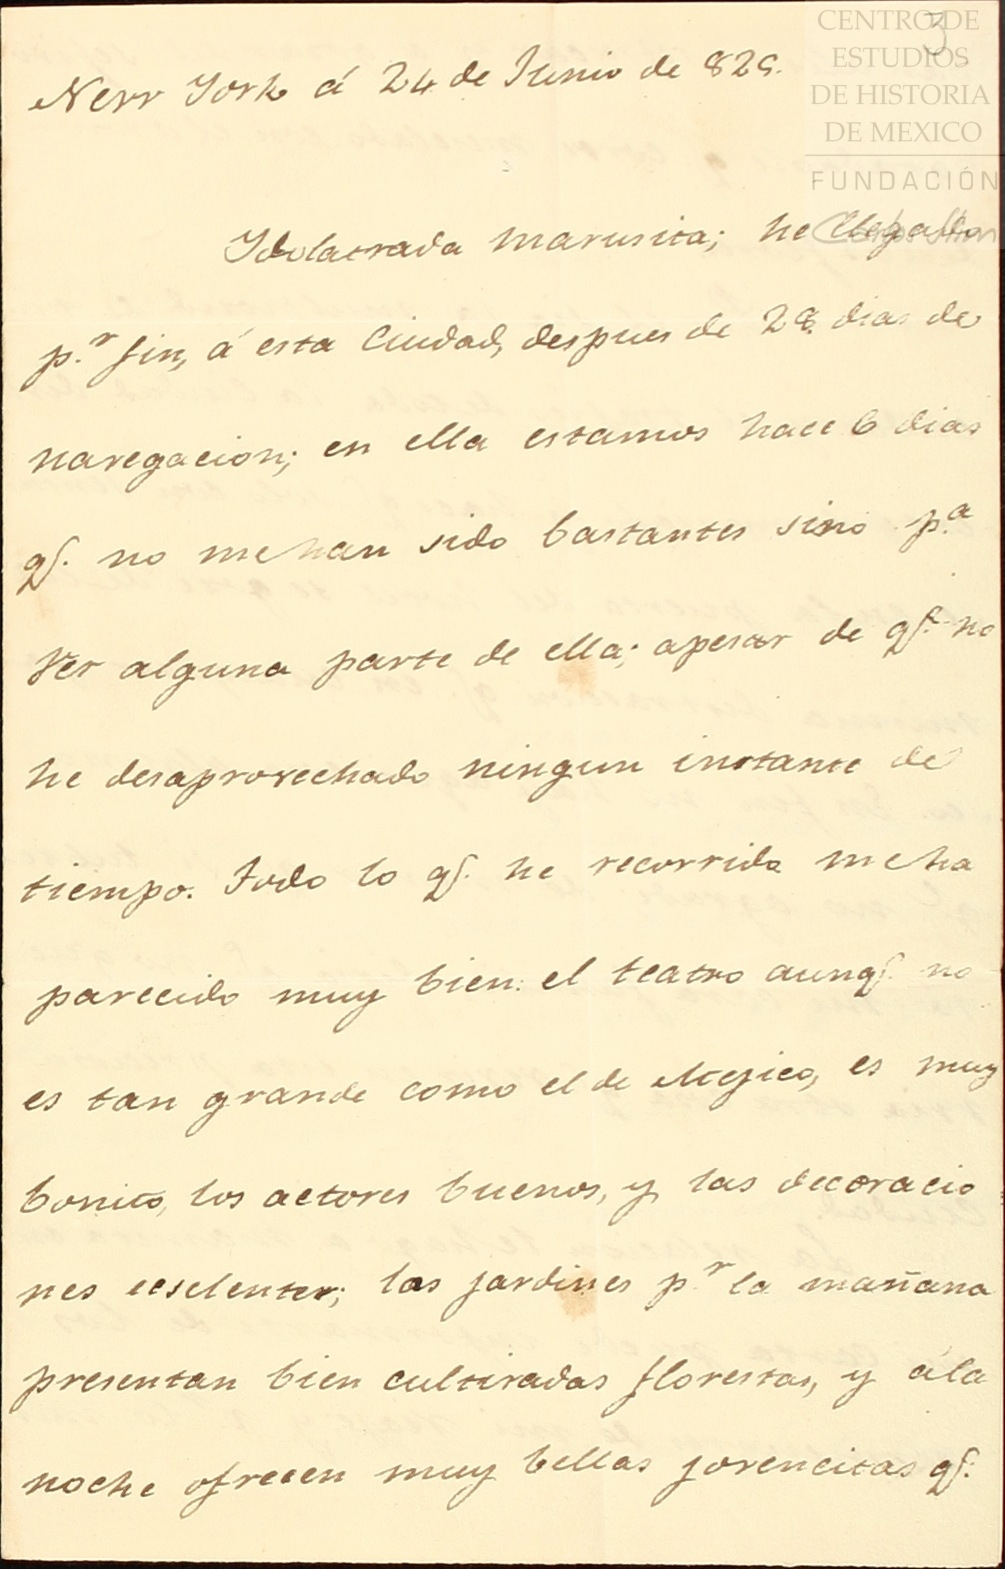 CENTRO DE
ESTUDIOS
DE HISTORIA
DE MEXICO
FUNDACIÓN
Carlos Slim
3
New York á 24 de Junio de 829.
Idolatrada marusita; he llegado
p.r fin, á esta Ciudad, despues de 28 dias de
navegacion; en ella estamos hace 6 dias
q.e no me han sido bastantes sino p.a
Ver alguna parte de ella; apesar de q.e no
he desaprovechado ningun instante de
tiempo. Todo lo q.e he recorrido me ha
parecido muy bien: el teatro aunq.e no
es tan grande como el de Mejico, es muy
bonito, los actores buenos, y las decoracio
nes ecselentes; las jardines p.r la mañana
presentan bien cultivadas florestas, y á la
noche ofrecen muy bellas jovencitas q.e